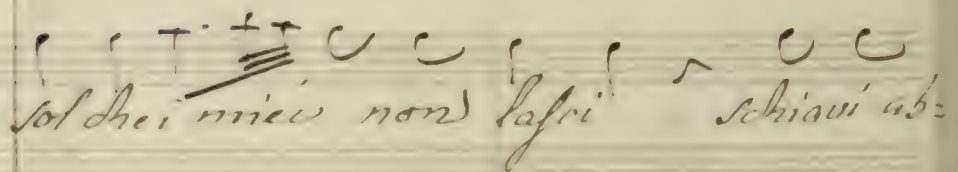 sol che i miei non lasci schiavi ab=